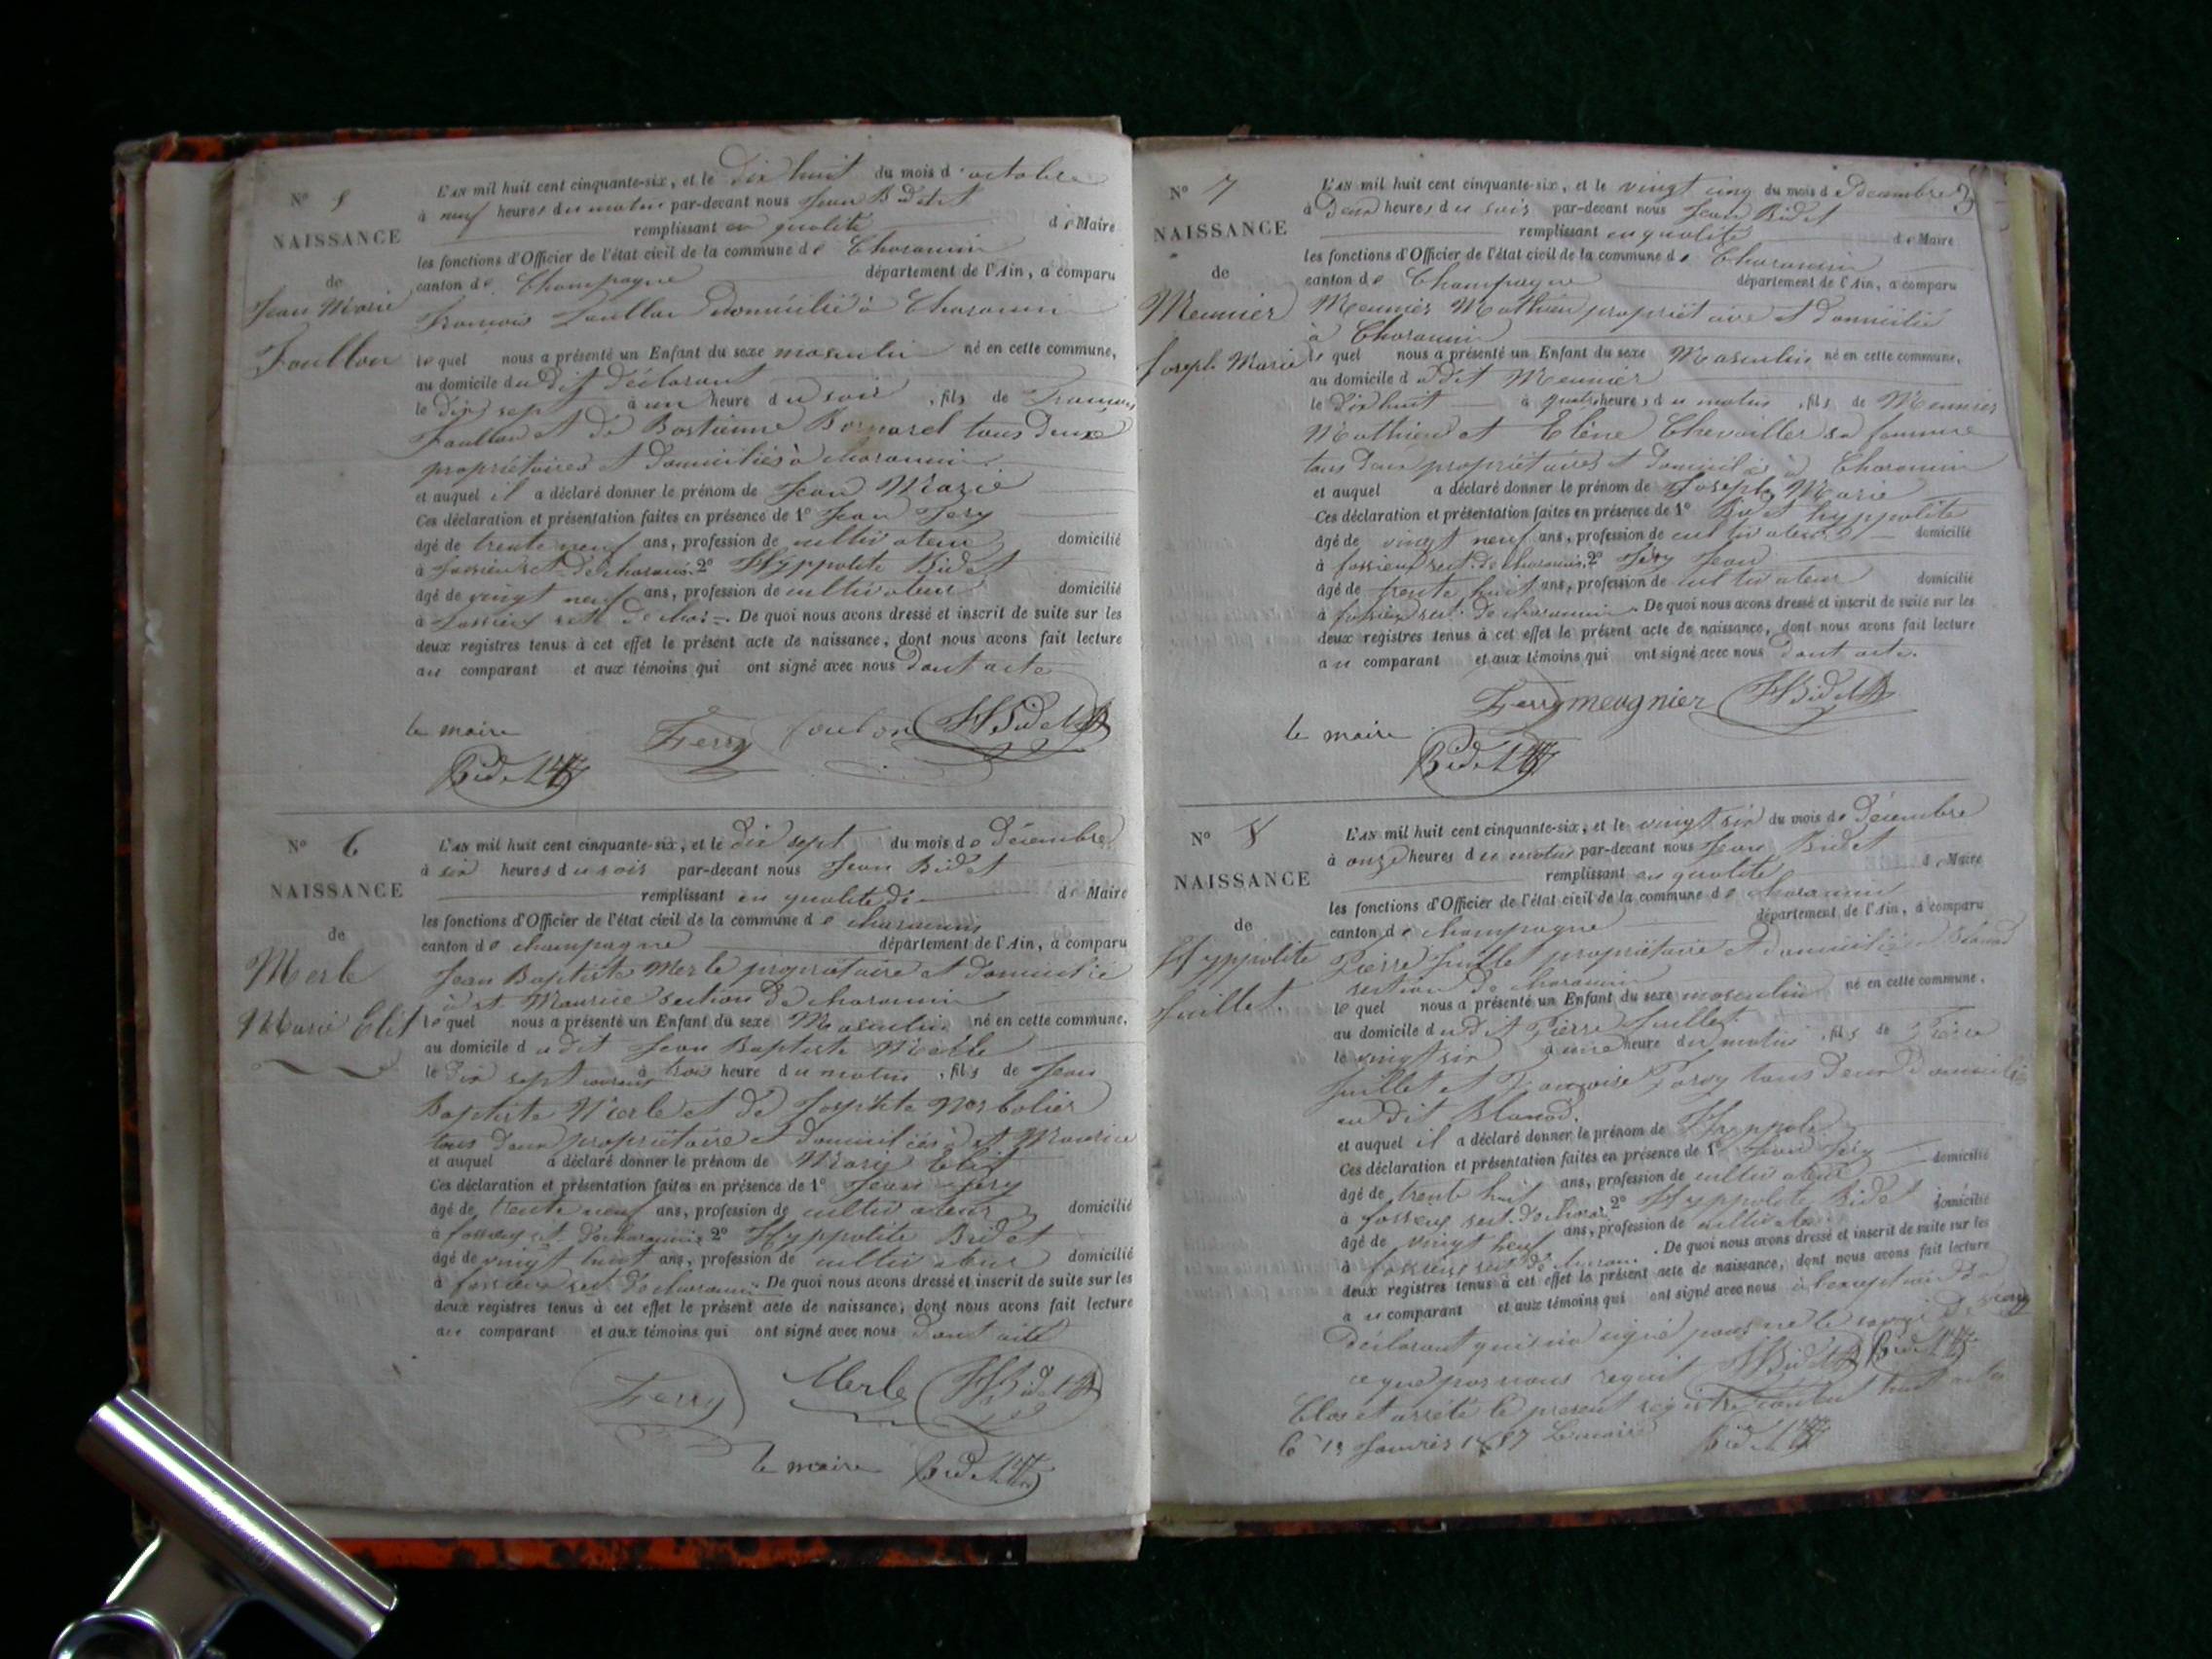 N° 5
NAISSANCE
de
Jean Marie
Foullon
L'AN mil huit cent cinquante-six, et le dix huit du mois d'octobre
à neuf heures du matin par-devant nous Jean Bidet
remplissant en qualité de Maire
les fonctions d'Officier de l'état civil de la commune de Charancin
canton de Champagne département de l'Ain, a comparu
François Foullon domicilié à Charancin
lequel nous a présenté un Enfant du sexe masculin né en cette commune,
au domicile du dit déclarant
le dix sept à un heure du soir, fils de François
Foullon et de Bostienne Bornard tous deux
propriétaires et domiciliés à charancin
et auquel il a déclaré donner le prénom de Jean Marie
Ces déclaration et présentation faites en présence de 1° Jean Fery
âgé de trente neuf ans, profession de cultivateur domicilié
à fossieux sect. de charancin 2° Hyppolite Bidet
âgé de vingt neuf ans, profession de cultivateur domicilié
à fossieux sect de cha. De quoi nous avons dressé et inscrit de suite sur les
deux registres tenus à cet effet le présent acte de naissance, dont nous avons fait lecture
au comparant et aux témoins qui ont signé avec nous dont acte
Ferry foulon HBidet
le maire
Bidet
N° 6
NAISSANCE
de
Merle
Marie Elit
L'AN mil huit cent cinquante-six, et le dix sept du mois de décembre
à six heures du soir par-devant nous Jean Bidet
remplissant en qualité de de Maire
les fonctions d'Officier de l'état civil de la commune de charancin
canton de champagne département de l'Ain, a comparu
Jean Baptiste Merle propriétaire et domicilié
à st Maurice section de charancin
lequel nous a présenté un Enfant du sexe Masculin né en cette commune,
au domicile du dit Jean Baptiste Merle
le dix sept courant à trois heure du matin, fils de Jean
Baptiste Merle et de
tous deux propriétaire et domiciliés à st Maurice
et auquel a déclaré donner le prénom de Marie Elit
Ces déclaration et présentation faites en présence de 1° Jean Fery
âgé de trente neuf ans, profession de cultivateur domicilié
à fossieux st. de charancin 2° Hyppolite Bidet
âgé de vingt huit ans, profession de cultivateur domicilié
à fossieux sect. de charancin. De quoi nous avons dressé et inscrit de suite sur les
deux registres tenus à cet effet le présent acte de naissance, dont nous avons fait lecture
au comparant et aux témoins qui ont signé avec nous dont acte
Ferry Merle HBidet
le maire Bidet
3
N° 7
NAISSANCE
de
Meunier
Joseph Marie
L'AN mil huit cent cinquante-six, et le vingt cinq du mois de décembre
à deux heures du soir par-devant nous Jean Bidet
remplissant en qualité de Maire
les fonctions d'Officier de l'état civil de la commune de Charancin
canton de Champagne département de l'Ain, a comparu
Meunier Mathieu propriétaire et domicilié
à Charancin
lequel nous a présenté un Enfant du sexe Masculin né en cette commune,
au domicile du dit Meunier
le dix huit à quatre heures du matin, fils de Meunier
Mathieu et Elène Chevailler sa femme
tous deux propriétaires et domiciliés à Charancin
et auquel a déclaré donner le prénom de Joseph Marie
Ces déclaration et présentation faites en présence de 1° Bidet hyppolite
âgé de vingt neuf ans, profession de cultivateur domicilié
à fossieux sect. de charancin 2° Féry Jean
âgé de trente huit ans, profession de cultivateur domicilié
à fossieux sect. de charancin. De quoi nous avons dressé et inscrit de suite sur les
deux registres tenus à cet effet le présent acte de naissance, dont nous avons fait lecture
au comparant et aux témoins qui ont signé avec nous dont acte.
Ferry meugnier HBidet
le maire
Bidet
N° 8
NAISSANCE
de
Hyppolite
Juillet.
L'AN mil huit cent cinquante-six, et le vingt six du mois de décembre
à onze heures du matin par-devant nous Jean Bidet
remplissant en qualité de Maire
les fonctions d'Officier de l'état civil de la commune de charancin
canton de champagne département de l'Ain, a comparu
Pierre Juillet propriétaire et domicilié à Blanod
section de charancin
lequel nous a présenté un Enfant du sexe masculin né en cette commune,
au domicile du dit Pierre Juillet
le vingt six à une heure du matin, fils de Pierre
Juillet et Françoise tous deux domicilié
au dit Blanod.
et auquel il a déclaré donner le prénom de
Ces déclaration et présentation faites en présence de 1° Jean Fery
âgé de trente huit ans, profession de cultivateur domicilié
à fossieux sect. de charan 2° Hyppolite Bidet domicilié
âgé de vingt neuf ans, profession de cultivateur
à fossieux sect de charan. De quoi nous avons dressé et inscrit de suite sur les
deux registres tenus à cet effet le présent acte de naissance, dont nous avons fait lecture
au comparant et aux témoins qui ont signé avec nous à l'exception du
déclarant qui n'a signé pour ne le savoir de Ferry
ce que par nous requit HBidet Bidet
Clos et arrêté le present registre contenant huit actes
le 13 Janvier 1857 Le maire Bidet